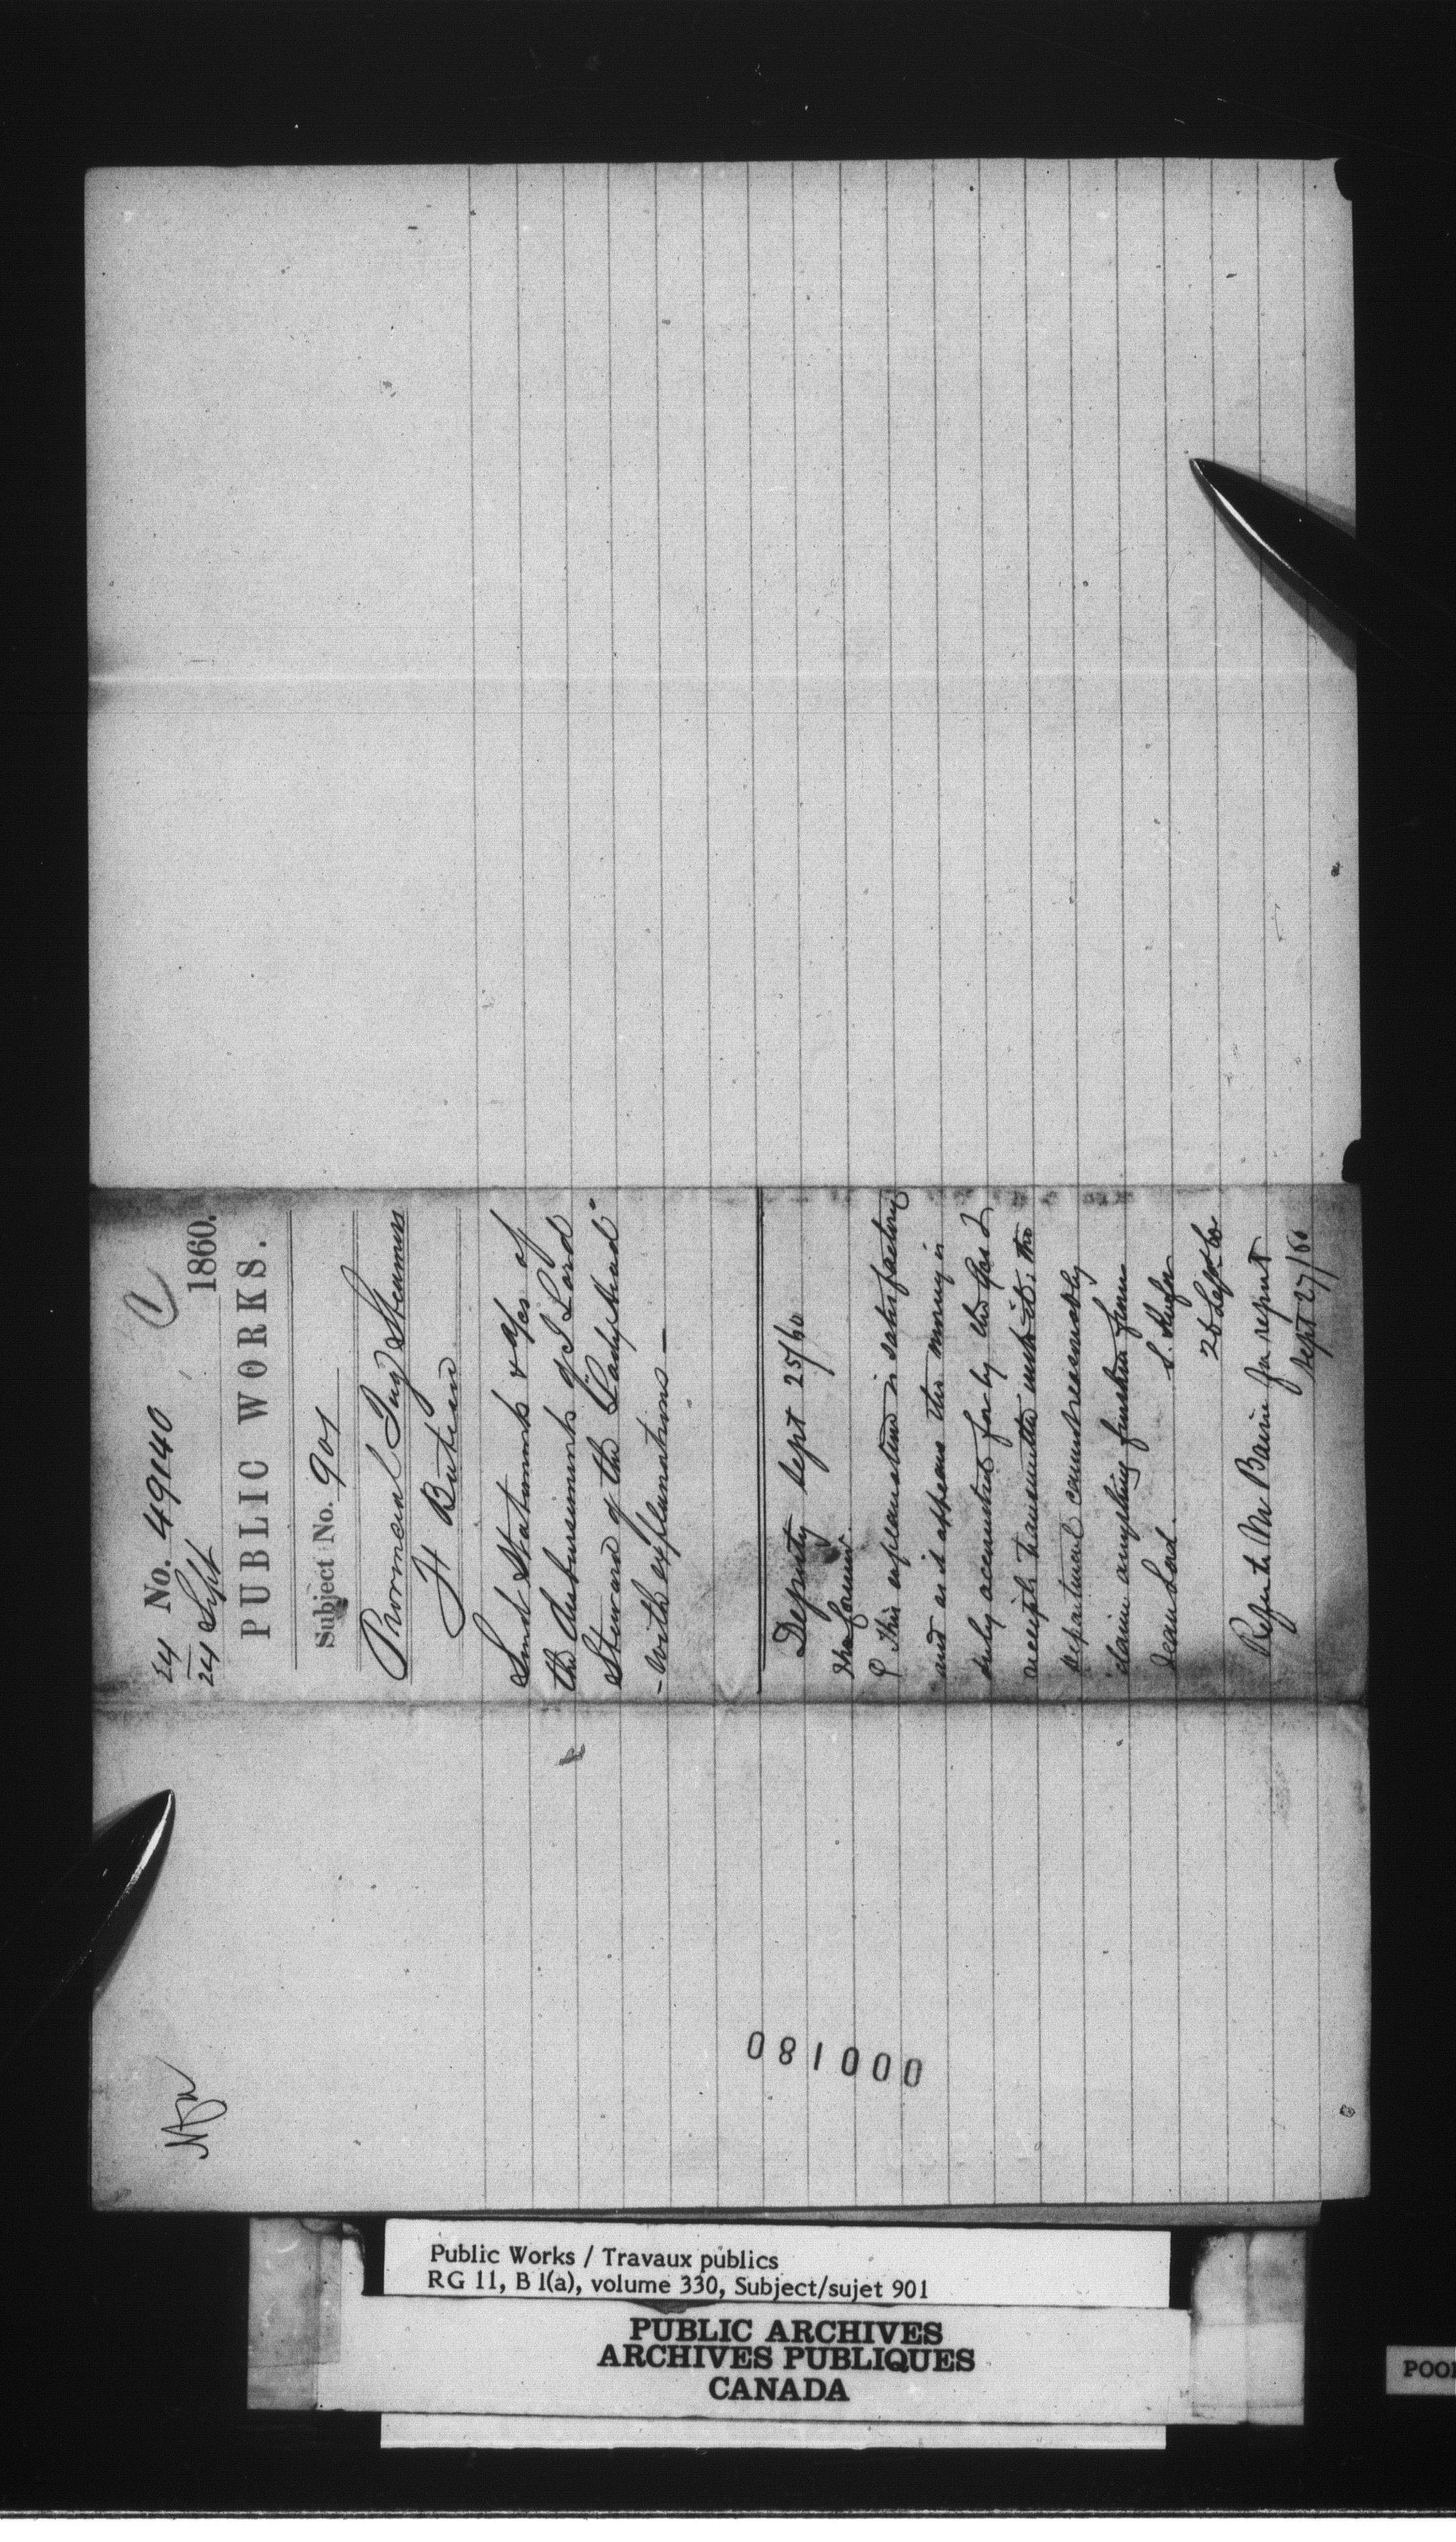 24 No. 49140 C
24 Sept 1860.
PUBLIC WORKS.
Subject No. 901
Provincial Tug Steamers
F Buteau
Sends Statements & a/cs of
the disbursements of J Lord
Steward of the "Lady Head"
- with explanations -
Deputy Sept 25/60
The Commr.
This explanation is satisfactory
and as it appears the money is
duly accounted for by the
receipts transmitted with it, the
Department cannot reasonably
claim anything further from
Jean Lord.
26 Sept 60
Refer to Mr Baine for report
Sept 27/60
000180
Public Works / Travaux publics
RG 11, B 1(a), volume 330, Subject/sujet 901
PUBLIC ARCHIVES
ARCHIVES PUBLIQUES
CANADA